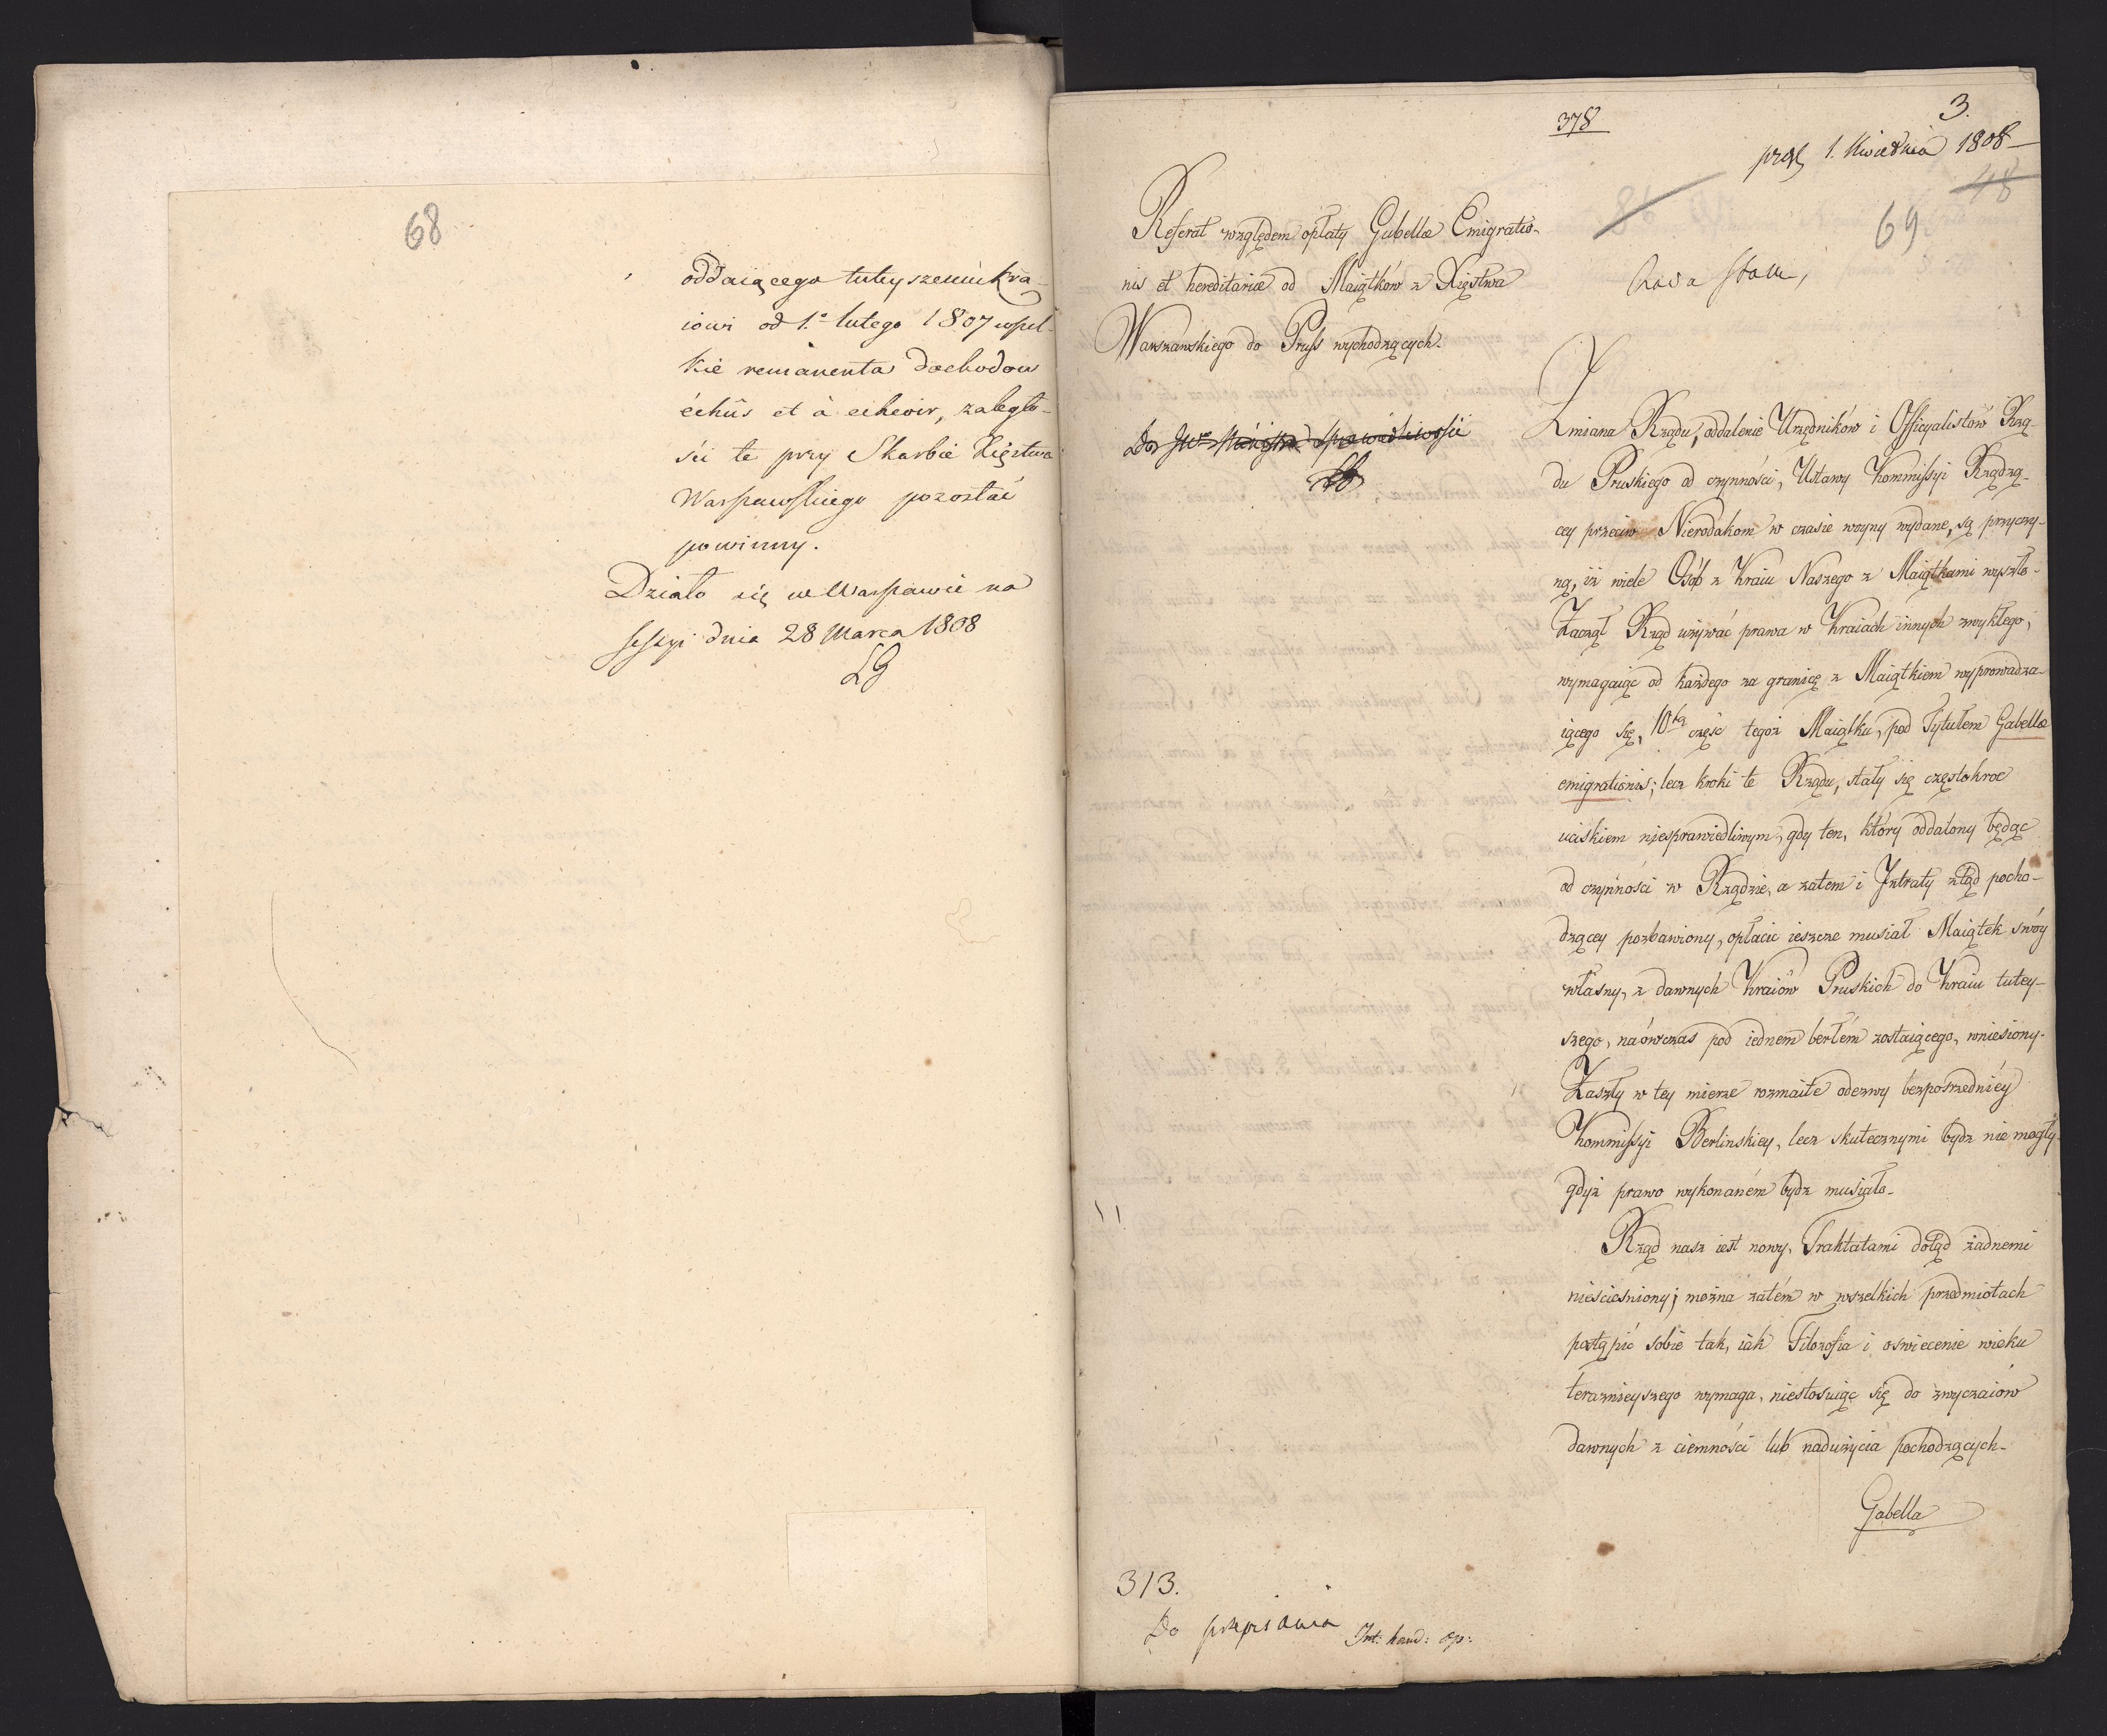 68
oddaiącego tuteyszemu kra-
iowi od 1.º lutego 1807 wszel-
kie remanenta dochodow
échûs et à echeoir, zaległo-
ści te przy Skarbie Xięztwa
Warszawskiego pozostać
powinny.
Działo się w Warszawie na
Sessyi dnia 28 Marca 1808
LG
378
3.
prez 1. Kwietnia 1808
48
69
Rada Stanu,
Referat względem opłaty Gabellæ Emigratio-
nis et hereditariæ od Maiątków z Xięstwa
Warszawskiego do Pruss wychodzących.
Do JWo Ministra Sprawiedliwości
Zmiana Rządu, oddalenie Urzędników i Officyalistów Rzą-
du Pruskiego od czynności, Ustawy Kommissyi Rządzą-
cey przeciw Nierodakom w czasie woyny wydane, są przyczy-
ną, iż wiele Osób z Kraiu Naszego z Maiątkami wyszło.
Zaczął Rząd używać prawa w Kraiach innych zwykłego,
wymagaiąc od każdego za granicę z Maiątkiem wyprowadza-
iącego się, 10tą część tegoż Maiątku, pod Tytułem Gabellæ
emigrationis; lecz kroki te Rządu, stały się częstokroć
uciskiem niesprawiedliwym, gdy ten, który oddalony będąc
od czynności w Rządzie, a zatem i Intraty ztąd pocho-
dzącey pozbawiony, opłacić ieszcze musiał Maiątek swóy
własny, z dawnych Kraiów Pruskich do Kraiu tutey-
szego, naówczas pod iednem berłem zostaiącego, wniesiony.
Zaszły w tey mierze rozmaite odezwy bezpośredniéy
Kommissyi Berlinskiey, lecz skutecznymi bydz nie mogły
gdyż prawo wykonaném bydz musiało.
Rząd nasz iest nowy, Traktatami dotąd żadnemi
nieściesniony; można zatém w wszelkich przedmiotach
postąpić sobie tak, iak Filozofia i oswiecenie wieku
teraznieyszego wymaga, niestosuiąc się do zwyczaiów
dawnych z ciemności lub nadużycia pochodzących.
Gabella
313.
Do przepisania
Int: hand: op: